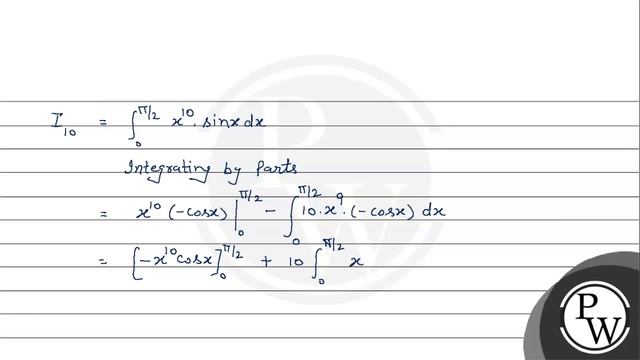 I₁₀ = ∫₀^π/2 x¹⁰. sinx dx
Integrating by Parts
= x¹⁰ (-cosx) |₀^π/2 - ∫₀^π/2 10.x⁹.(-cosx) dx
= [-x¹⁰cosx]₀^π/2 + 10 ∫₀^π/2 x
P
W